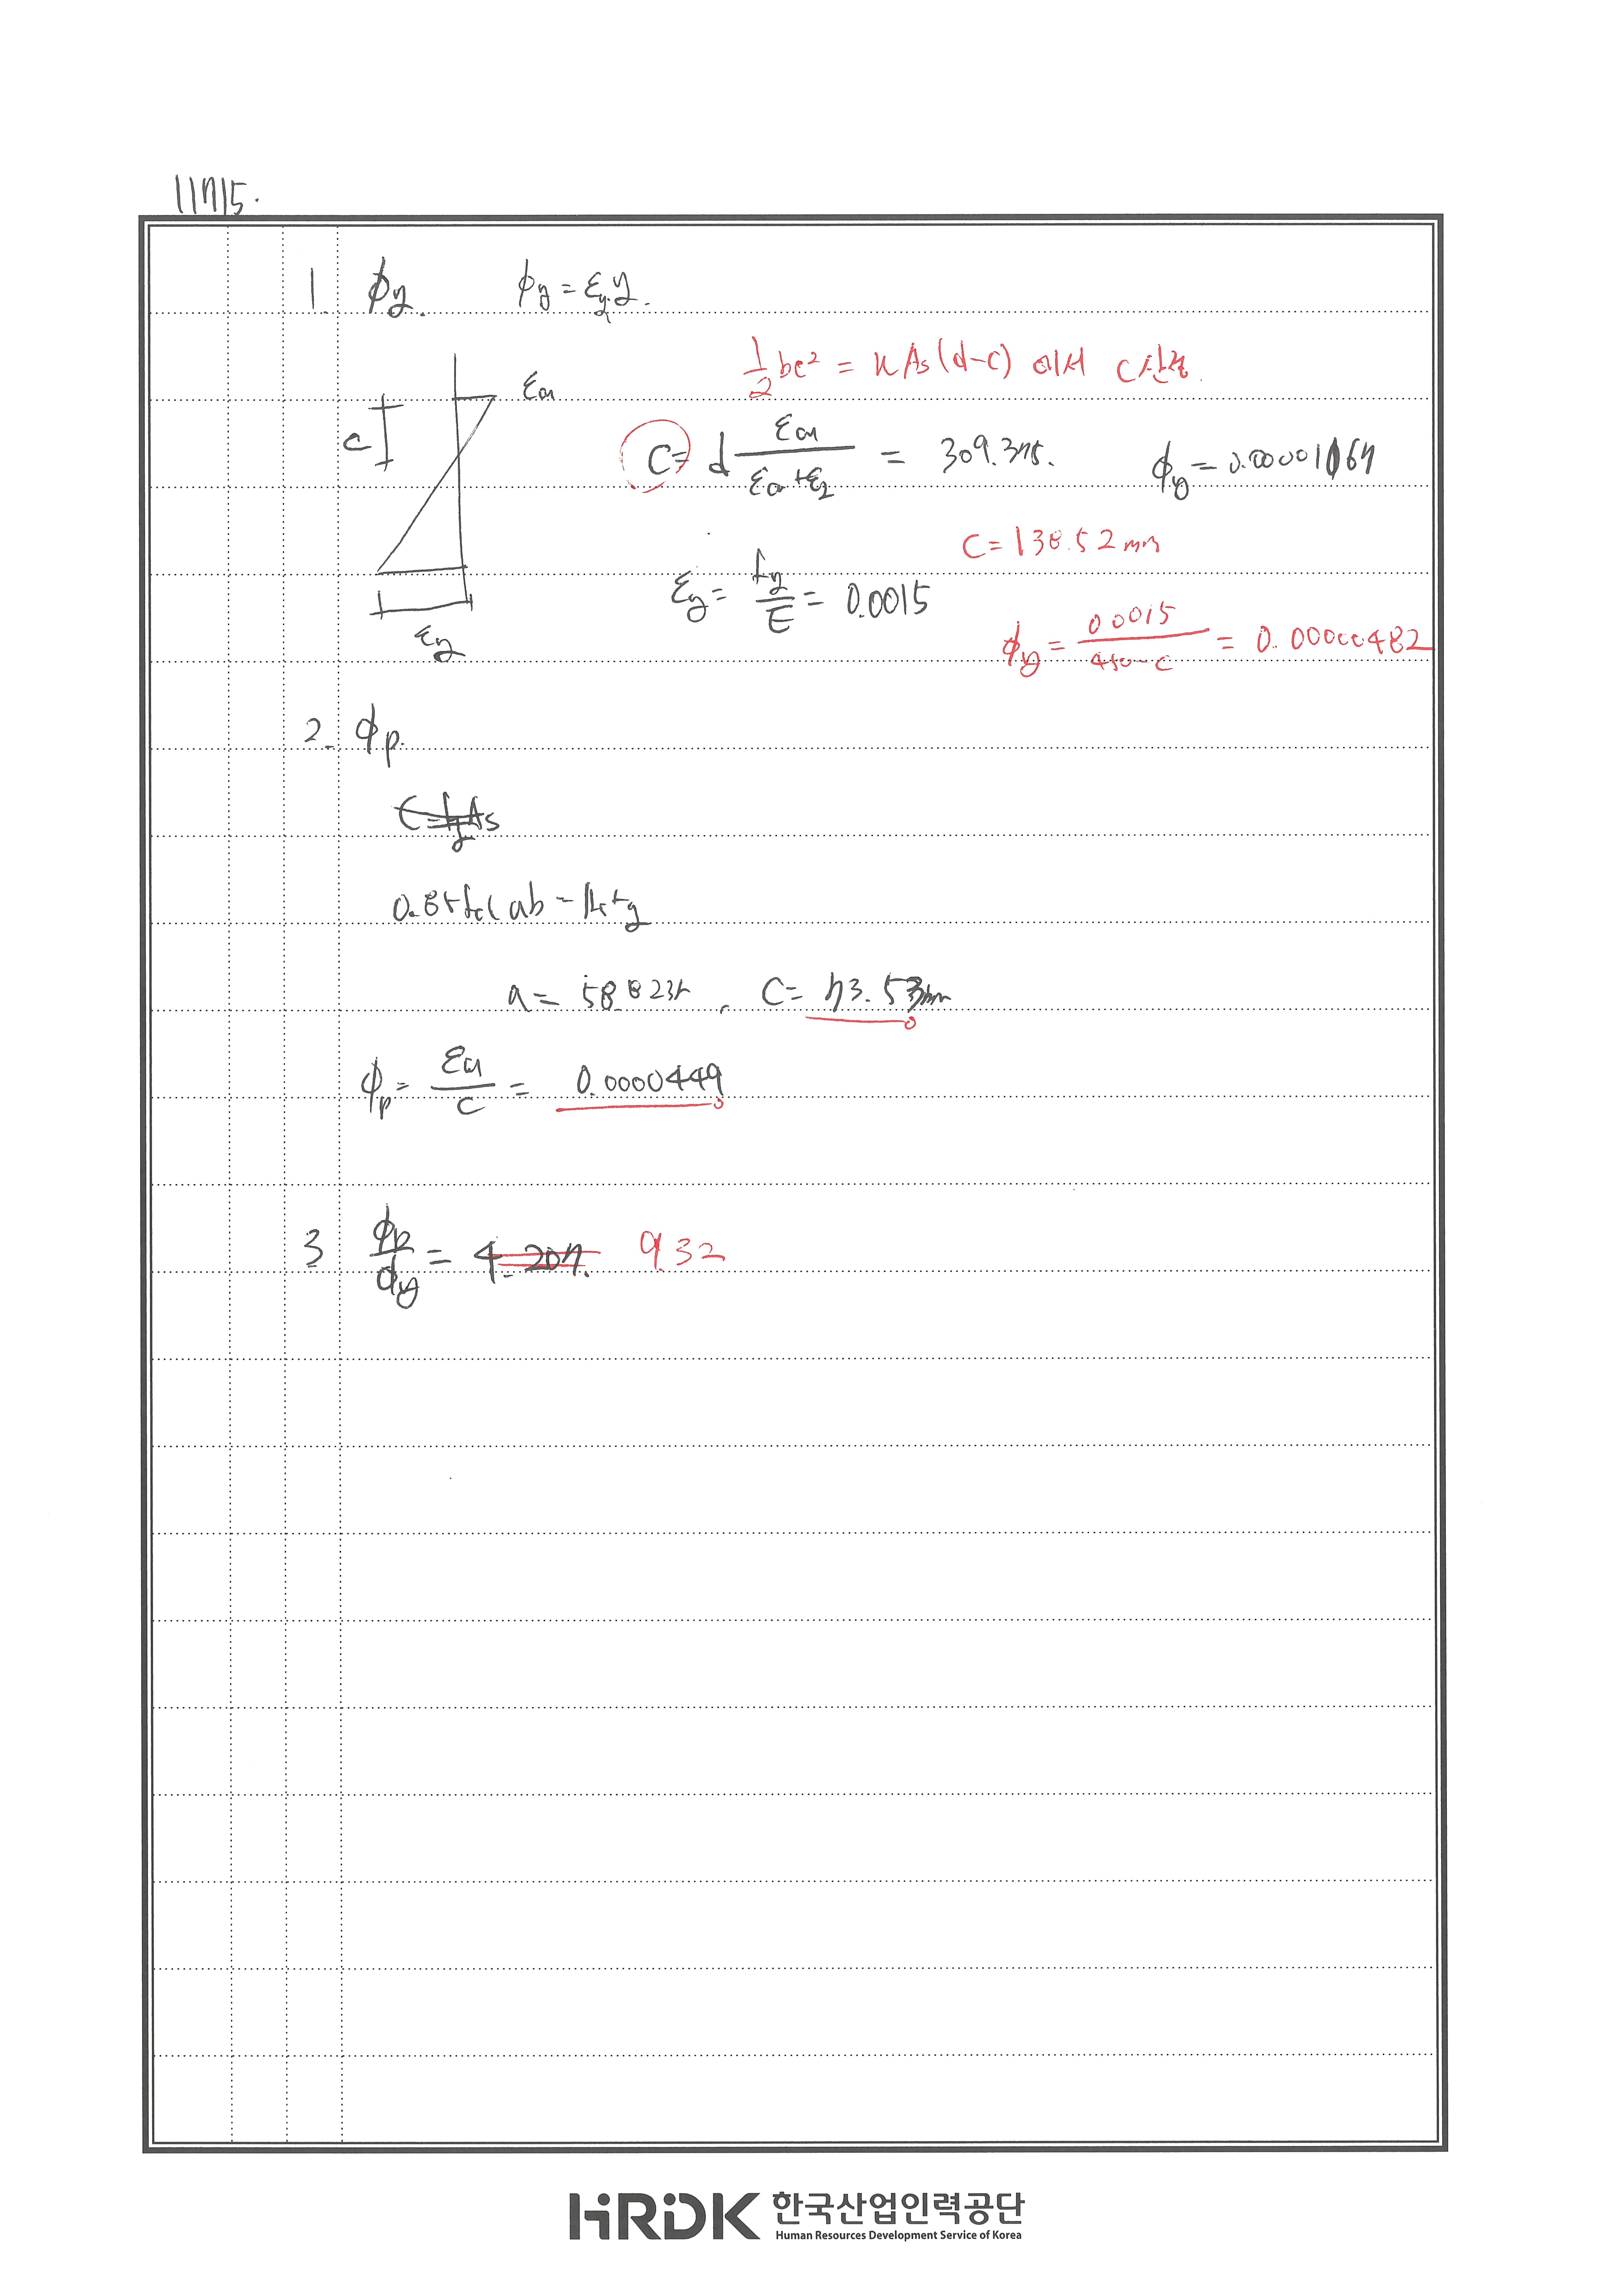 11715.
1. ϕy. ϕy = εy.y.
εcu
1/2 bc² = n As (d-c) 에서 C산출.
C
C = d εcu/(εcu+εy) = 309.375. ϕy = 0.00001067
C = 138.52 mm
εy = fy/E = 0.0015
εy
ϕy = 0.0015/(450-c) = 0.00000482
2. ϕp.
C=fyAs
0.85fck ab = Asfy
a = 58.8235, C = 73.53mm
ϕp = εcu/c = 0.0000449
3 ϕp/ϕy = 4.207. 9.32
HRDK 한국산업인력공단
Human Resources Development Service of Korea